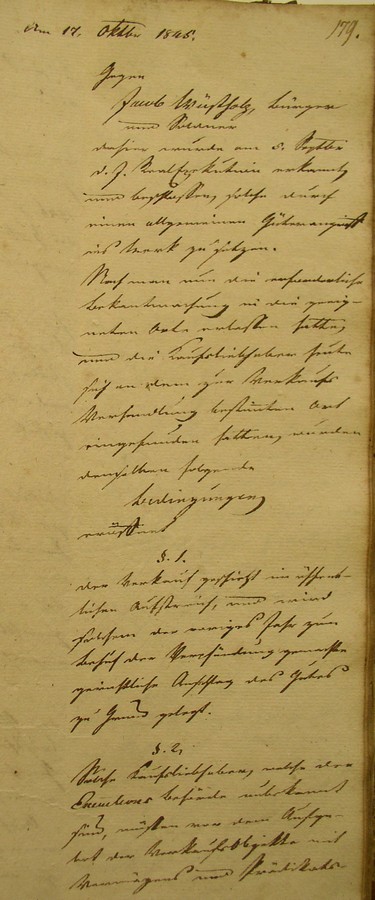 den 17. Oktbr 1845.
179.
Gegen
Jacob Wüstholz, Bürger
und Söldner
dahier wurde am 5. Septbr
d. J. Realexekution erkannt
und beschlossen, solche durch
einen allgemeinen Güterangriff
ins Werk zu setzen.
Nach man nun die erforderliche
Bekanntmachung in die geeig-
neten Orte erlassen hatte,
und die Kaufsliebhaber heute
sich an dem zur Verkaufs
Verhandlung bestimten Ort
eingefunden hatten, wurden
denselben folgende
Bedingungen
eröffnet
§. 1.
Der Verkauf geschieht im öffent-
lichen Aufstreich, und wird
solchem der voriges Jahr zum
Behuf der Verpfändung gemachte
gerichtliche Anschlag des Gutes
zu Grund gelegt.
§. 2.
Solche Kaufsliebhaber, welche der
Behörde unbekannt
sind, müssen vor dem Aufge-
bot der Verkaufs Objekte mit
Vermögens und Prädikats-